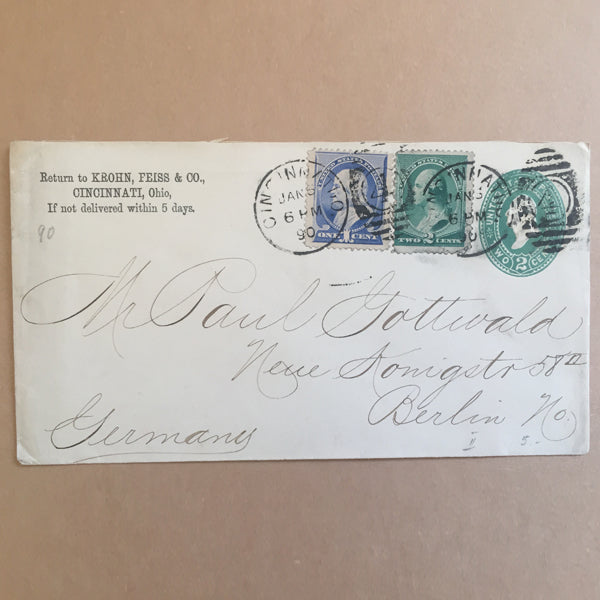 Return to KROHN, FEISS & CO.,
CINCINNATI, Ohio,
If not delivered within 5 days.
90
CINCINNATI
JAN 6
6 PM
90
ONE 1 CENT
TWO 2 CENTS
JAN 6
6 PM
TWO 2
Mr Paul Gottwald
Neue Konigstr 58 II
Berlin No.
Germany